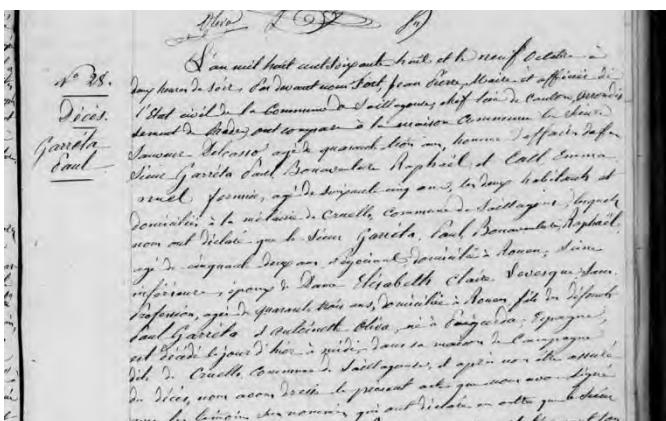 Oliva
N° 28.
Décès.
Garréta
Paul
L'an mil huit cent soixante huit et le neuf Octobre à
deux heures du soir, Par devant nous Fort, Jean Pierre, Maire et officier de
l'Etat civil de la Commune de Saillagouse, chef lieu de Canton, arrondis
sement de Prades, ont comparu à la maison Commune le Sieur
Sauveur Delcasso agé de quarante trois ans, homme d'affaires de feu
Sieur Garréta Paul Bonaventure Raphaël et Call Emma
nuel fermier, agé de soixante cinq ans, les deux habitants et
domiciliés à la métairie de Cruells, commune de Saillagouse, lesquels
nous ont déclaré que le Sieur Garréta, Paul Bonaventure, Raphaël,
agé de cinquante deux ans négociant domicilié à Rouen, Seine
inférieure, époux de Dame Elisabeth Claire Levesque sans
profession, agée de quarante trois ans, domiciliée à Rouen fils des défunts
Paul Garréta et Antoinette Oliva, né à Puigcerda, Espagne,
est décédé le jour d'hier à midi, dans sa maison de Campagne
dite de Cruells, Commune de Saillagouse, et après nous être assuré
du décès, nous avons dressé le présent acte que nous avons signé
les témoins sus nommés, qui ont déclaré en outre que le Sieur